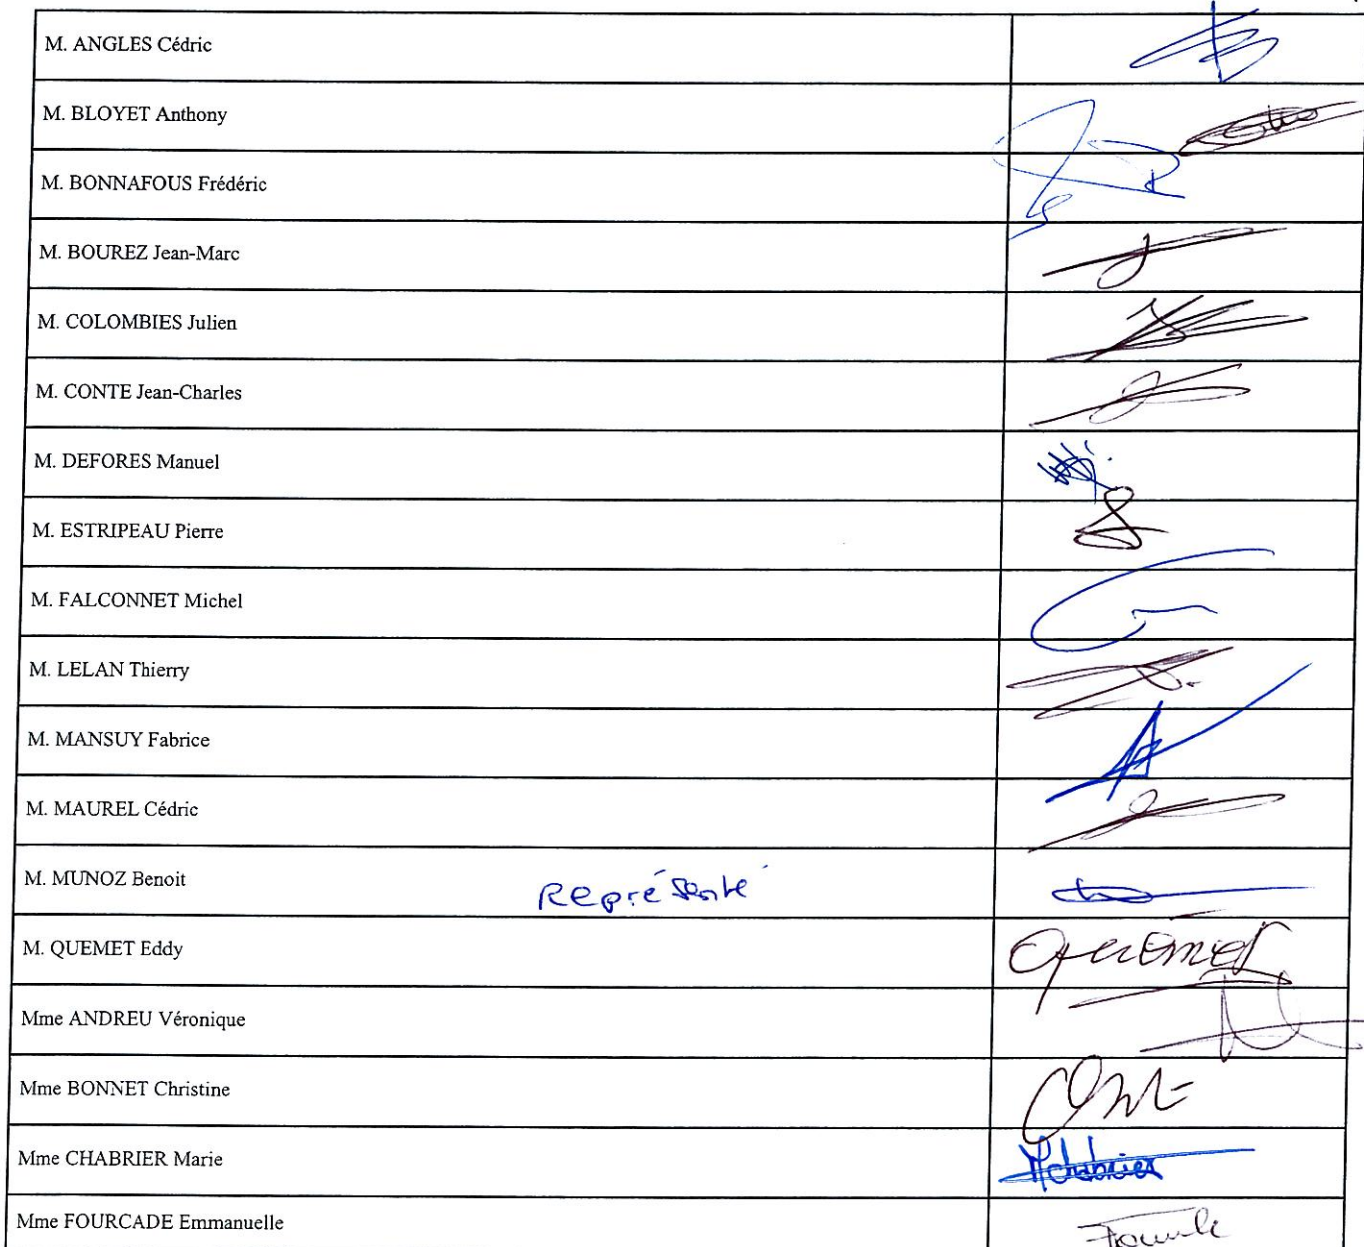 M. ANGLES Cédric
M. BLOYET Anthony
M. BONNAFOUS Frédéric
M. BOUREZ Jean-Marc
M. COLOMBIES Julien
M. CONTE Jean-Charles
M. DEFORES Manuel
M. ESTRIPEAU Pierre
M. FALCONNET Michel
M. LELAN Thierry
M. MANSUY Fabrice
M. MAUREL Cédric
M. MUNOZ Benoit Représenté
M. QUEMET Eddy Quémet
Mme ANDREU Véronique
Mme BONNET Christine
Mme CHABRIER Marie MChabrier
Mme FOURCADE Emmanuelle